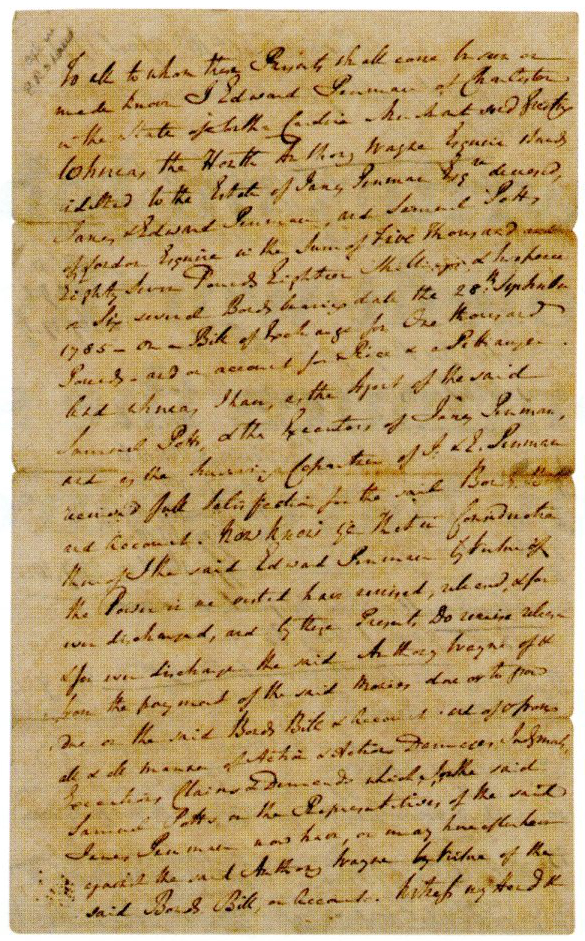 To all to whom these Presents shall come be seen or
made known I Edward Penman of Charleston
in the State of South Carolina Merchant send Greeting
Whereas the Honble Anthony Wayne Esquire stands
indebted to the Estate of James Penman Esqre deceased,
James & Edward Penman, and Samuel Potts
of London Esquire in the Sum of Five thousand and
Eighty Seven Pounds Eighteen Shillings & Sixpence
on Six several Bonds bearing date the 28th September
1785 - on a Bill of Exchange for One thousand
Pounds - and on account for Rice & a Petiauger.
And whereas I have, as the Agent of the said
Samuel Potts, & the Executors of James Penman,
and as the Surviving Copartner of J. & E. Penman
received full Satisfaction for the said Bonds
and Account. Now know ye that in Consideration
thereof I the said Edward Penman by virtue of
the Power in me vested have remised, released, & for
ever discharged, and by these Presents Do remise release
& for ever discharge the said Anthony Wayne of &
from the payment of the said Monies due or to grow
due on the said Bonds Bill & Account. and of & from
all & all manner of Action & Actions Damages, Judgments,
Executions Claims & Demands which the said
Samuel Potts, or the Representatives of the said
James Penman now have, or may hereafter have
against the said Anthony Wayne by virtue of the
said Bonds Bill, or Account. Witness my Hand &